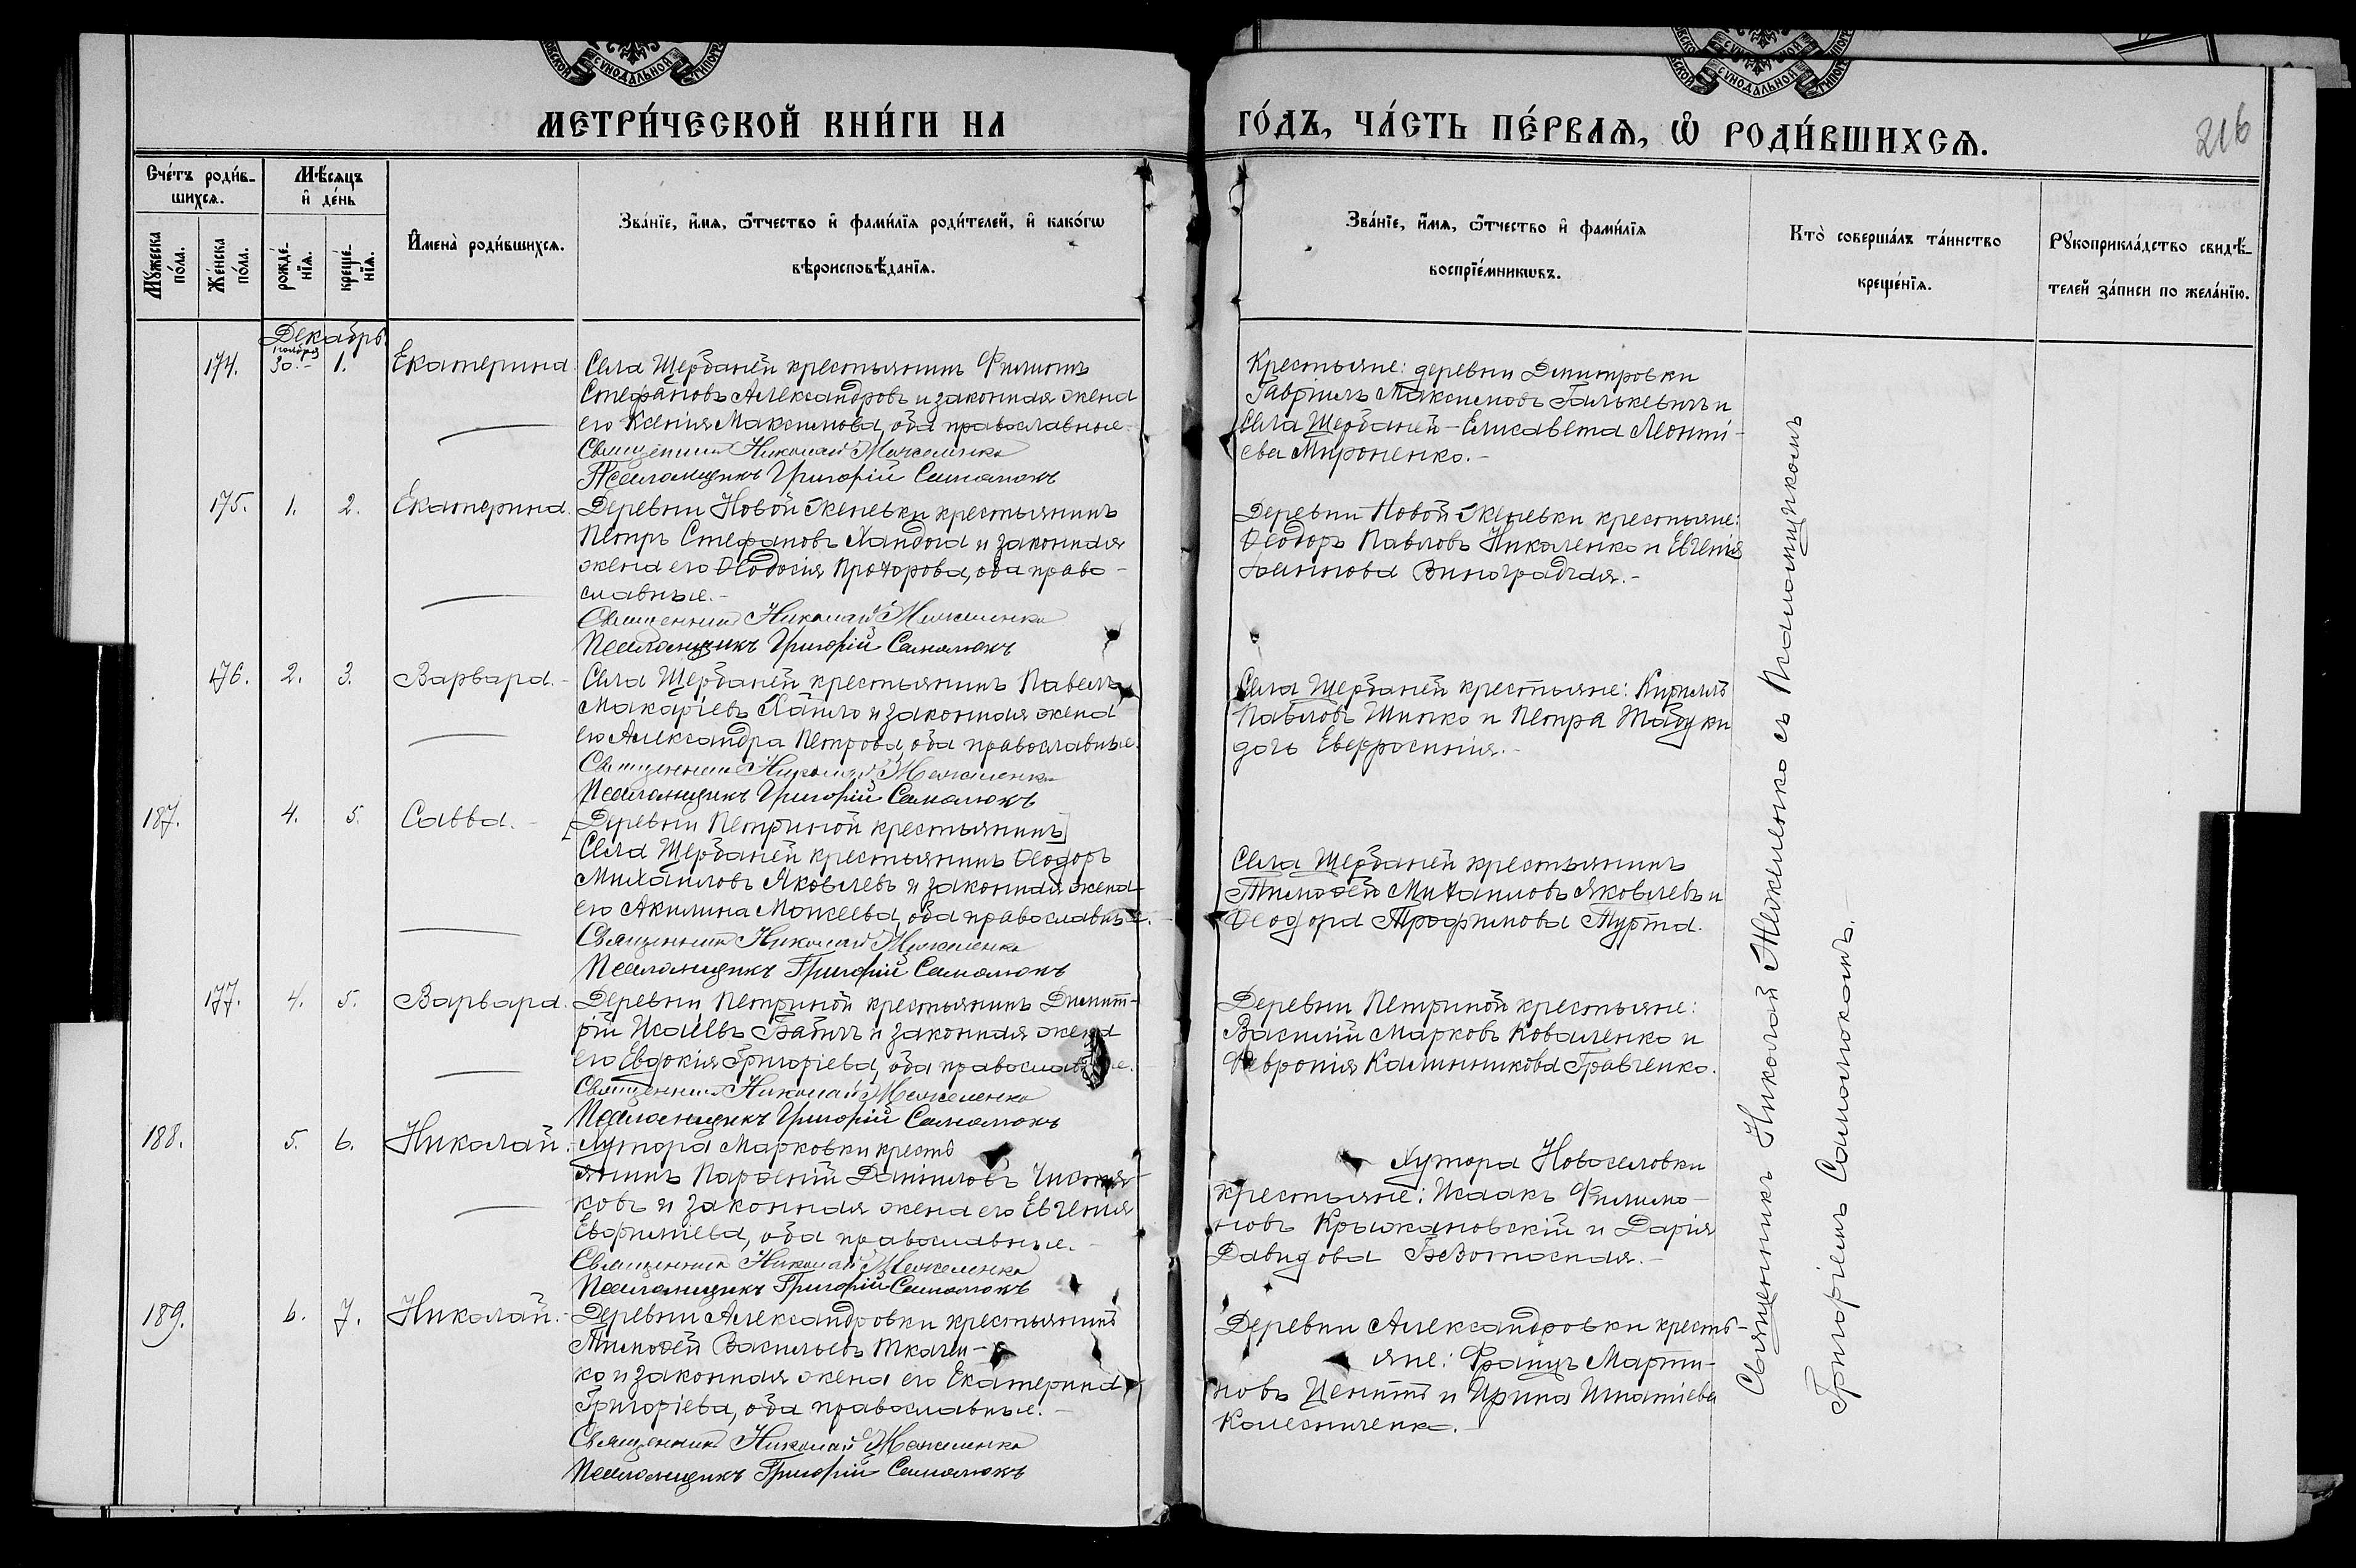 СѴНОДАЛЬНОЙ
СѴНОДАЛЬНОЙ
МЕТРИ́ЧЕСКОЙ КНИ́ГИ НА
ГО́ДЪ, ЧА́СТЬ ПЕ́РВАѦ, Ѡ҆ РОДИ́ВШИХСѦ.
216
Сче́тъ роди́в-
шихсѧ.
Мѣ́сяцъ
и҆ де́нь
Мꙋ́жеска
по́ла.
Же́нска
по́ла.
рожде́-
нїѧ.
креще́-
нїѧ.
И҆мена̀ роди́вшихсѧ.
Зва́нїе, и҆́мѧ, ѻ҆́тчество и҆ фами́лїѧ роди́телей, и҆ како́гѡ
вѣроисповѣ́данїѧ.
Зва́нїе, и҆́мѧ, ѻ҆́тчество и҆ фами́лїѧ
воспрїе́мникѡвъ.
Кто̀ соверша́лъ та́инство
креще́нїѧ.
Рꙋкоприкла́дство свидѣ́-
телей за́писи по жела́нїю.
Декабрь
174. ноября 30.- 1. Екатерина. Села Щербаней крестьянинъ Филиппъ
Стефановъ Александровъ и законная жена
его Ксенія Максимова, оба православные.
Священникъ Николай
Псаломщикъ Григорій Самолюкъ
Крестьяне: деревни Димитровки
Гавріилъ Максимовъ Галькевичъ и
Села Щербаней - Елисавета Леонті-
ева Мироненко.-
175. 1. 2. Екатерина. Деревни Новой крестьянинъ
Петръ Стефановъ Хандога и законная
жена его Ѳеодосія Прохорова, оба право-
славные.-
Священникъ Николай
Псаломщикъ Григорій Самолюкъ
Деревни Новой крестьяне:
Ѳеодоръ Павловъ Николенко и Евгенія
Іоаннова Виноградчая.-
176. 2. 3. Варвара.- Села Щербаней крестьянинъ Павелъ
Макаріевъ и законная жена
его Александра Петрова, оба православные.
Священникъ Николай
Псаломщикъ Григорій Самолюкъ
Села Щербаней крестьяне: Кириллъ
Павловъ Шипко и Петра
дочь Евфросинія.-
187. 4. 5. Савва.- [Деревни Петриной крестьянинъ]
Села Щербаней крестьянинъ Ѳеодоръ
Михаиловъ Яковлевъ и законная жена
его Акилина Моисеева, оба православные.
Священникъ Николай
Псаломщикъ Григорій Самолюкъ
Села Щербаней крестьянинъ
Тимоѳей Михаиловъ Яковлевъ и
Ѳеодора Трофимова Турта.
177. 4. 5. Варвара. Деревни Петриной крестьянинъ Димит-
рій Исаіевъ и законная жена
его Евдокія Григоріева, оба православные.
Священникъ Николай
Псаломщикъ Григорій Самолюкъ
Деревни Петриной крестьяне:
Василій Марковъ Коваленко и
Февронія Калинникова Гравченко.
188. 5. 6. Николай. Хутора Марковки кресть
янинъ Парѳеній Даніиловъ Чижия-
ковъ и законная жена его Евгенія
Евфиміева, оба православные.-
Священникъ Николай
Псаломщикъ Григорій Самолюкъ
Хутора Новоселовки
крестьяне: Исаакъ Филимо-
новъ Крыжановскій и Дарія
Давидова Безотосная.-
189. 6. 7. Николай.- Деревни Александровки крестьянинъ
Тимоѳей Васильевъ Ткачен-
ко и законная жена его Екатерина
Григоріева, оба православные.-
Священникъ Николай
Псаломщикъ Григорій Самолюкъ
Деревни Александровки кресть-
яне: Францъ Марти-
новъ и Ирина Игнатіева
Колесниченко.-
Священникъ Николай съ Псаломщикомъ
Григоріемъ Самолюкомъ.-